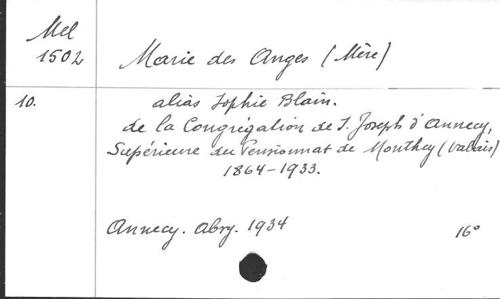 Mel
1502
Marie des Anges (Mère)
10.
alias Sophie Blain.
de la Congrégation de S. Joseph d'Annecy,
Supérieure du Pensionnat de Monthey (Valais)
1864-1933.
Annecy. Abry. 1934
16°